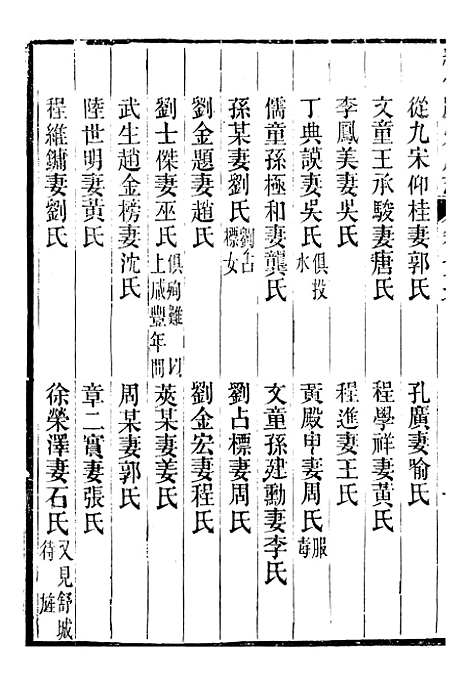 從九宋仰桂妻郭氏
孔廣妻喻氏
文童王承駿妻唐氏
程學祥妻黃氏
李鳳美妻吳氏
程進妻王氏
丁典謨妻吳氏俱投水
黃殿申妻周氏服毒
儒童孫極和妻龔氏
文童孫建勳妻李氏
孫某妻劉氏劉占標女
劉占標妻周氏
劉金題妻趙氏
劉金宏妻程氏
劉士傑妻巫氏俱殉難以上咸豐年間
萊某妻姜氏
武生趙金榜妻沈氏
周某妻郭氏
陸世明妻黃氏
章二賓妻張氏
程維鏞妻劉氏
徐榮澤妻石氏又見舒城待旌